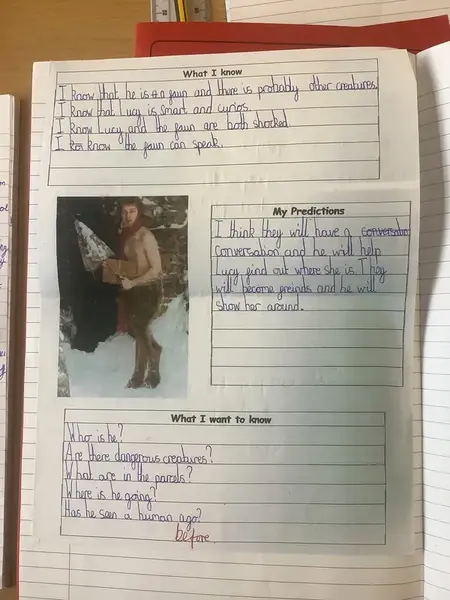 What I know
I know that he is a faun and there is probably other creatures.
I know that Lucy is smart and curios.
I know Lucy and the faun are both shocked
I know the faun can speak.
My Predictions
I think they will have a
conversation and he will help
Lucy find out where she is. They
will become freinds and he will
show her around.
What I want to know
Who is he?
Are there dangerous creatures?
What are in the parcels?
Where is he going?
Has he seen a human ago?
before